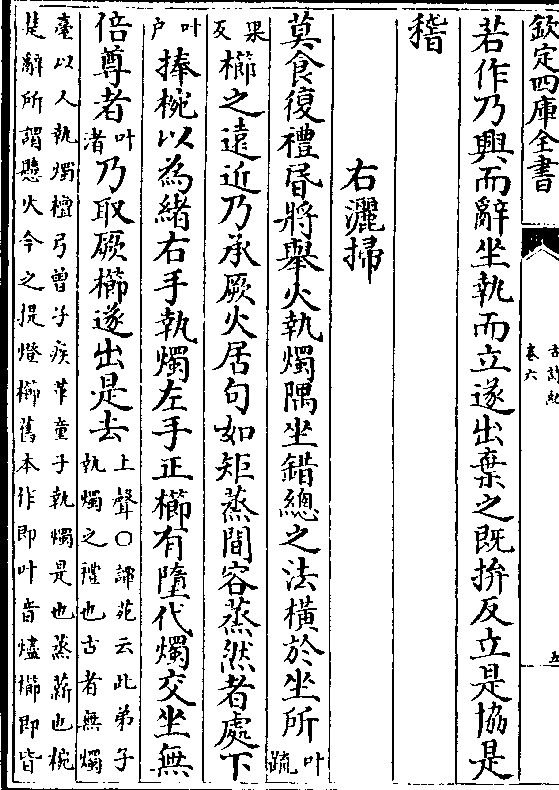 欽定四庫全書
古詩紀
卷六
五
若作乃興而辭坐執而立遂出棄之既拚反立是協是
稽
右灑掃
莫食復禮昏將舉火執燭隅坐錯總之法橫於坐所叶疏
果反櫛之遠近乃承厥火居句如矩蒸間容蒸然者處下
叶户捧椀以為緒右手執燭左手正櫛有墮代燭交坐無
倍尊者叶渚乃取厥櫛遂出是去上聲○譚苑云此弟子
執燭之禮也古者無燭
臺以人執燭檀弓曾子疾革童子執燭是也蒸薪也椀
楚辭所謂懸火今之提燈櫛舊本作即叶音燼櫛即皆